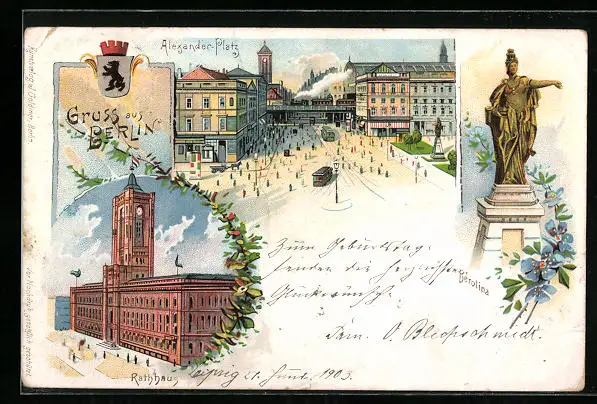 Alexander-Platz
Gruss aus
BERLIN
Zum Geburtstag
senden die herzlichsten
Glückwünsche
Berolina
Fam. O. Blechschmidt.
Rathhaus
Leipzig 21. Juni 1903.